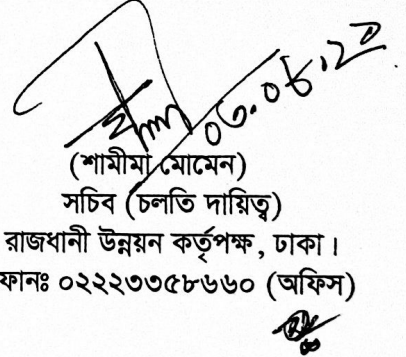 (শামীমা মোমেন)
সচিব (চলতি দায়িত্ব)
রাজধানী উন্নয়ন কর্তৃপক্ষ, ঢাকা।
ফোনঃ ০২২২৩৩৫৮৬৬০ (অফিস)